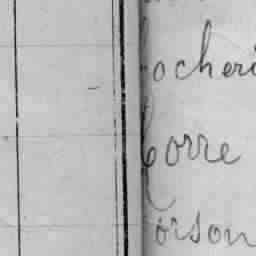 ocheri
Corre
orson